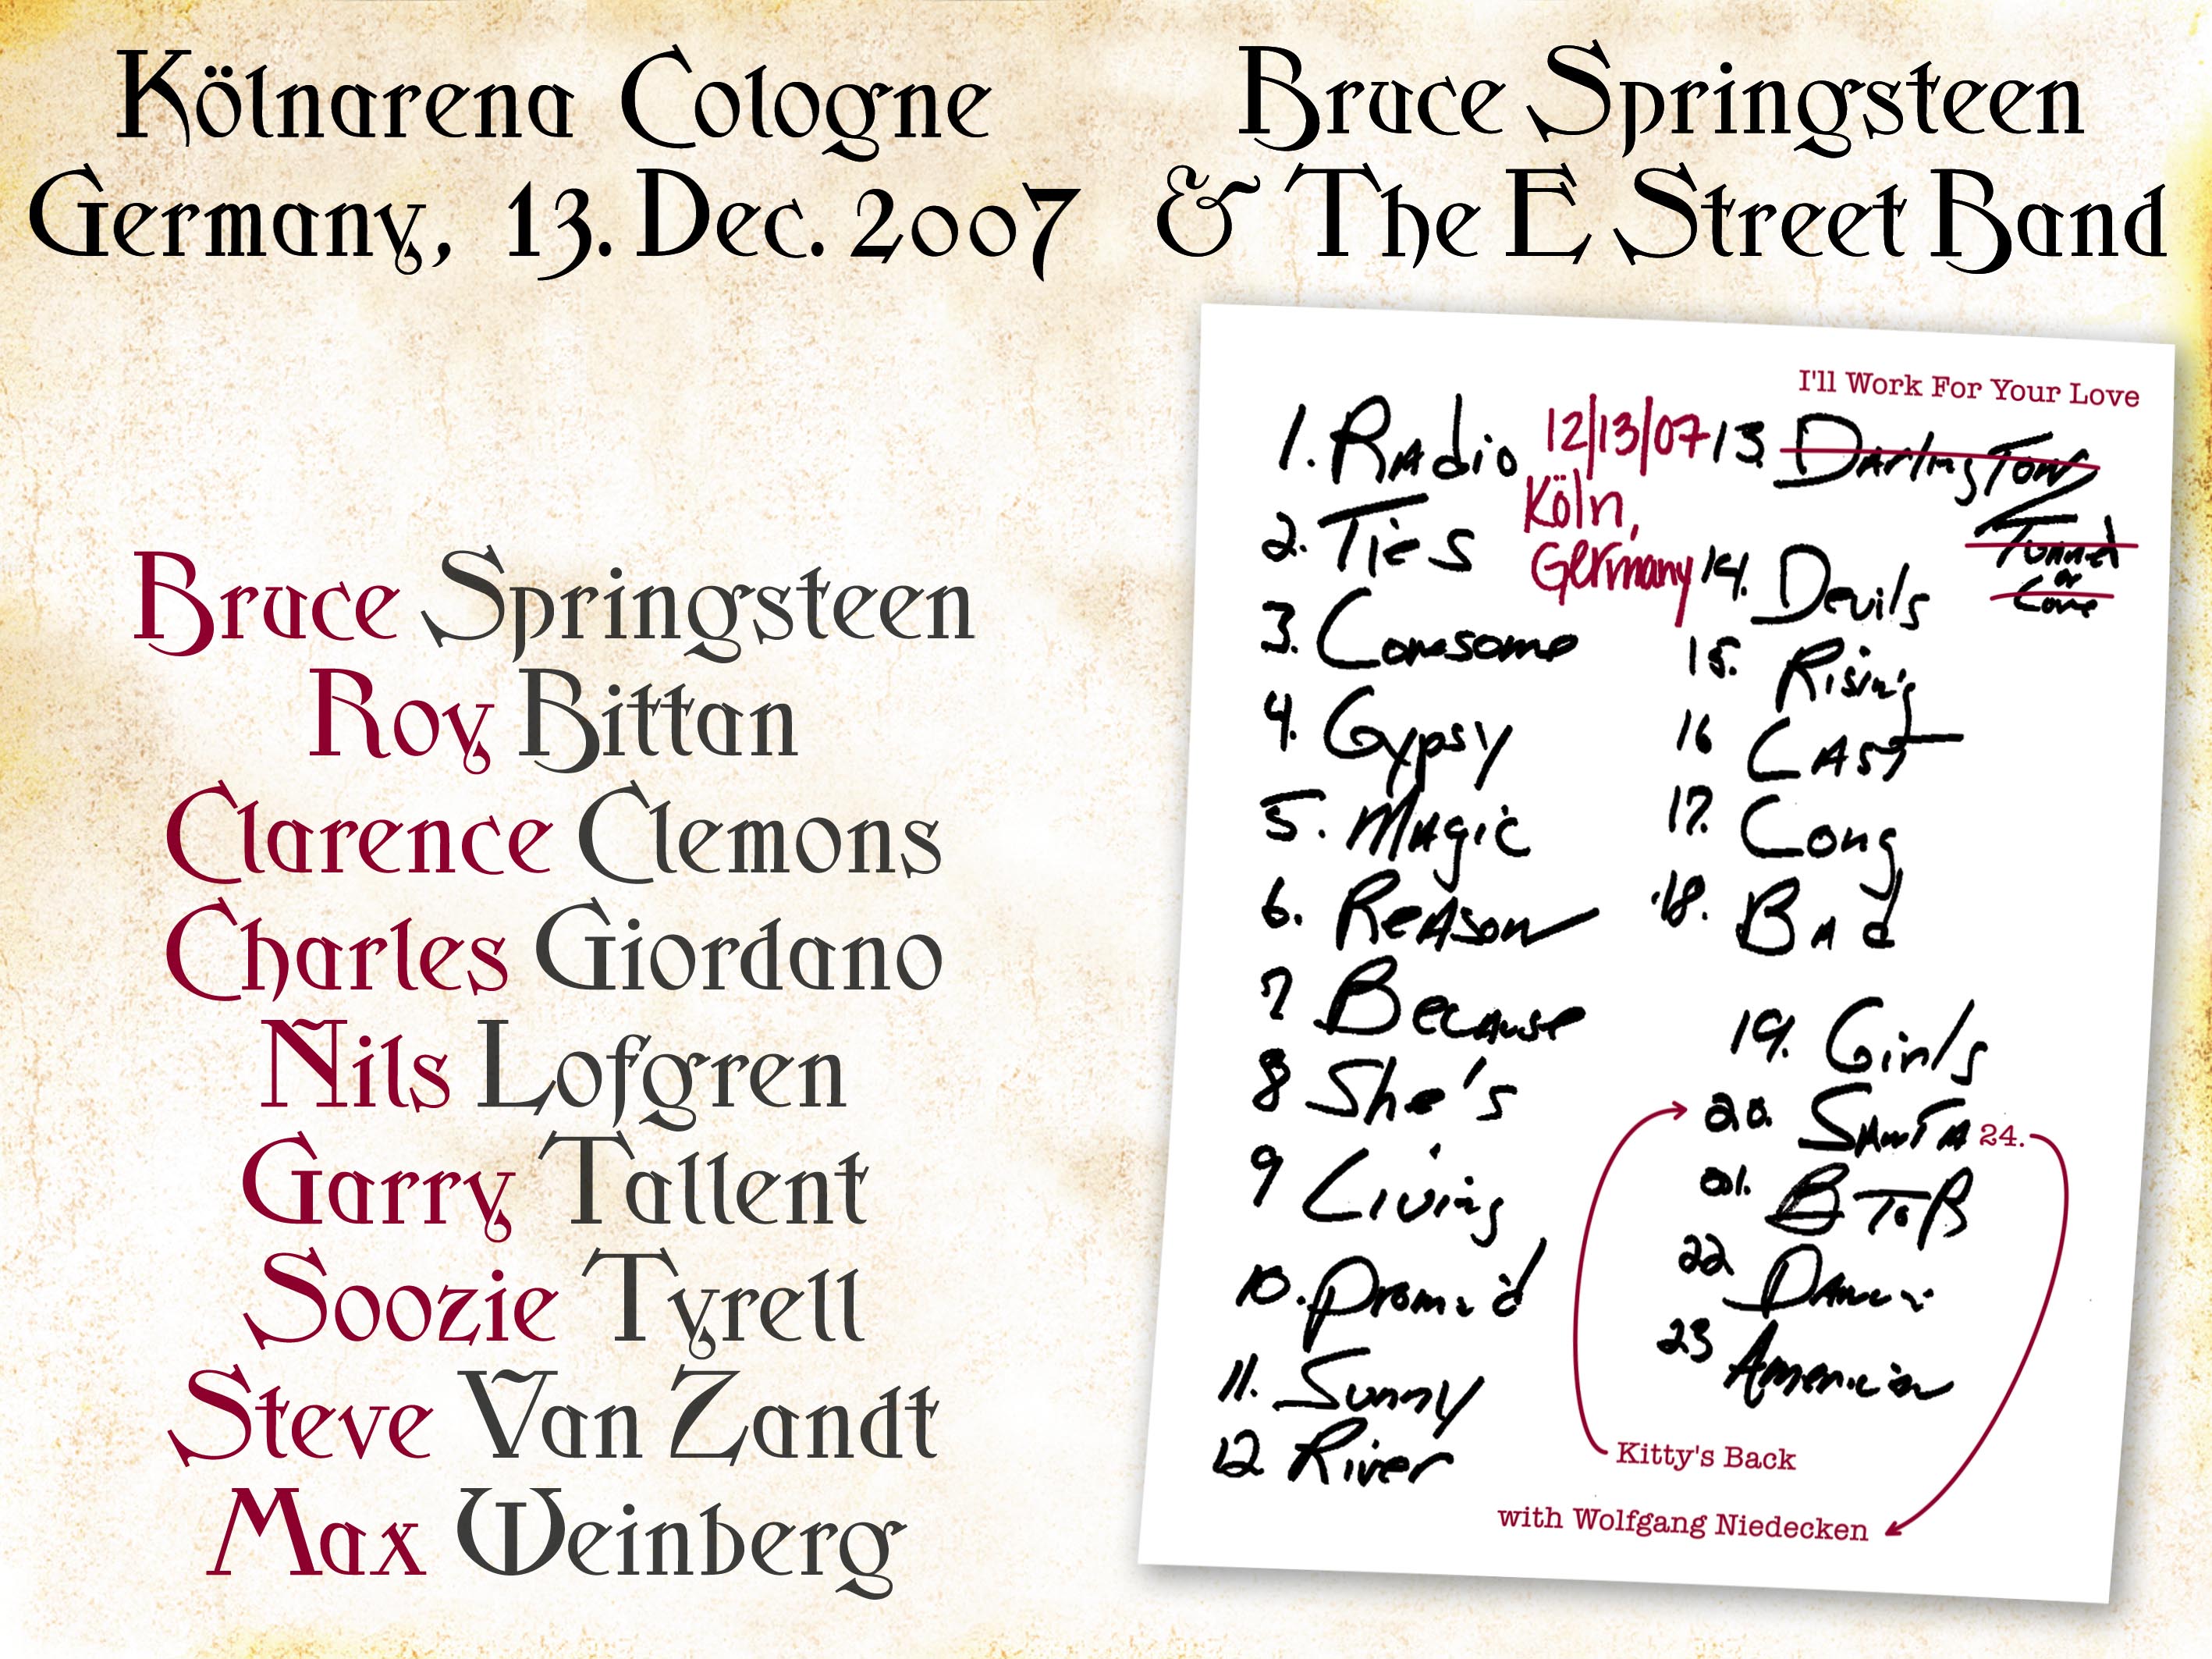 Kölnarena Cologne
Germany, 13. Dec. 2007
Bruce Springsteen
& The E Street Band
Bruce Springsteen
Roy Bittan
Clarence Clemons
Charles Giordano
Nils Lofgren
Garry Tallent
Soozie Tyrell
Steve Van Zandt
Max Weinberg
12/13/07
Köln,
Germany
1. Radio
2. Ties
3. Lonesome
4. Gypsy
5. Magic
6. Reason
7 Because
8 She's
9 Living
10. Prom. d
11. Sunny
12 River
I'll Work For Your Love
13. Darlington
Tunnel
of
Love
14. Devils
15. Rising
16 Last
17. Long
18. Bad
19. Girls
20. Santa 24.
21. B To R
22 Dancin
23 American
Kitty's Back
with Wolfgang Niedecken